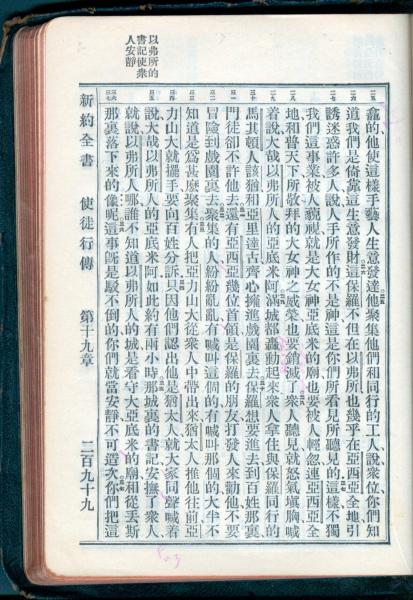 以弗所的
書記使衆
人安靜
龕的他使這樣手藝人生意發達他聚集他們和同行的工人說衆位你們知
道我們是倚靠這生意發財這保羅不但在以弗所也幾乎在亞西亞全地引
誘迷惑許多人說人手所作的不是神這是你們所看見所聽見的這樣不獨
我們這事業被人藐視就是大女神亞底米的廟也要被人輕忽連亞西亞全
地和普天下所敬拜的大女神之威榮也要銷滅了衆人聽見就怒氣填胸喊
着說大哉以弗所人的亞底米阿滿城都轟動起來衆人拿住與保羅同行的
馬其頓人該猶和亞里達古齊心擁進戲園裏去保羅想要進去到百姓那裏
門徒卻不許他去還有亞西亞幾位首領是保羅的朋友打發人來勸他不要
冒險到戲園裏去聚集的人紛紛亂亂有喊叫這個的有喊叫那個的大半不
知道是爲甚麼聚集有人把亞力山大從衆人中帶出來猶太人推他往前亞
力山大就擺手要向百姓分訴只因他們認出他是猶太人就大家同聲喊着
說大哉以弗所人的亞底米阿如此約有兩小時那城裏的書記安撫了衆人
就說以弗所人哪誰不知道以弗所人的城是看守大亞底米的廟和從丟斯
那裏落下來的像呢這事旣是駁不倒的你們就當安靜不可造次你們把這
新約全書 使徒行傳 第十九章 二百九十九